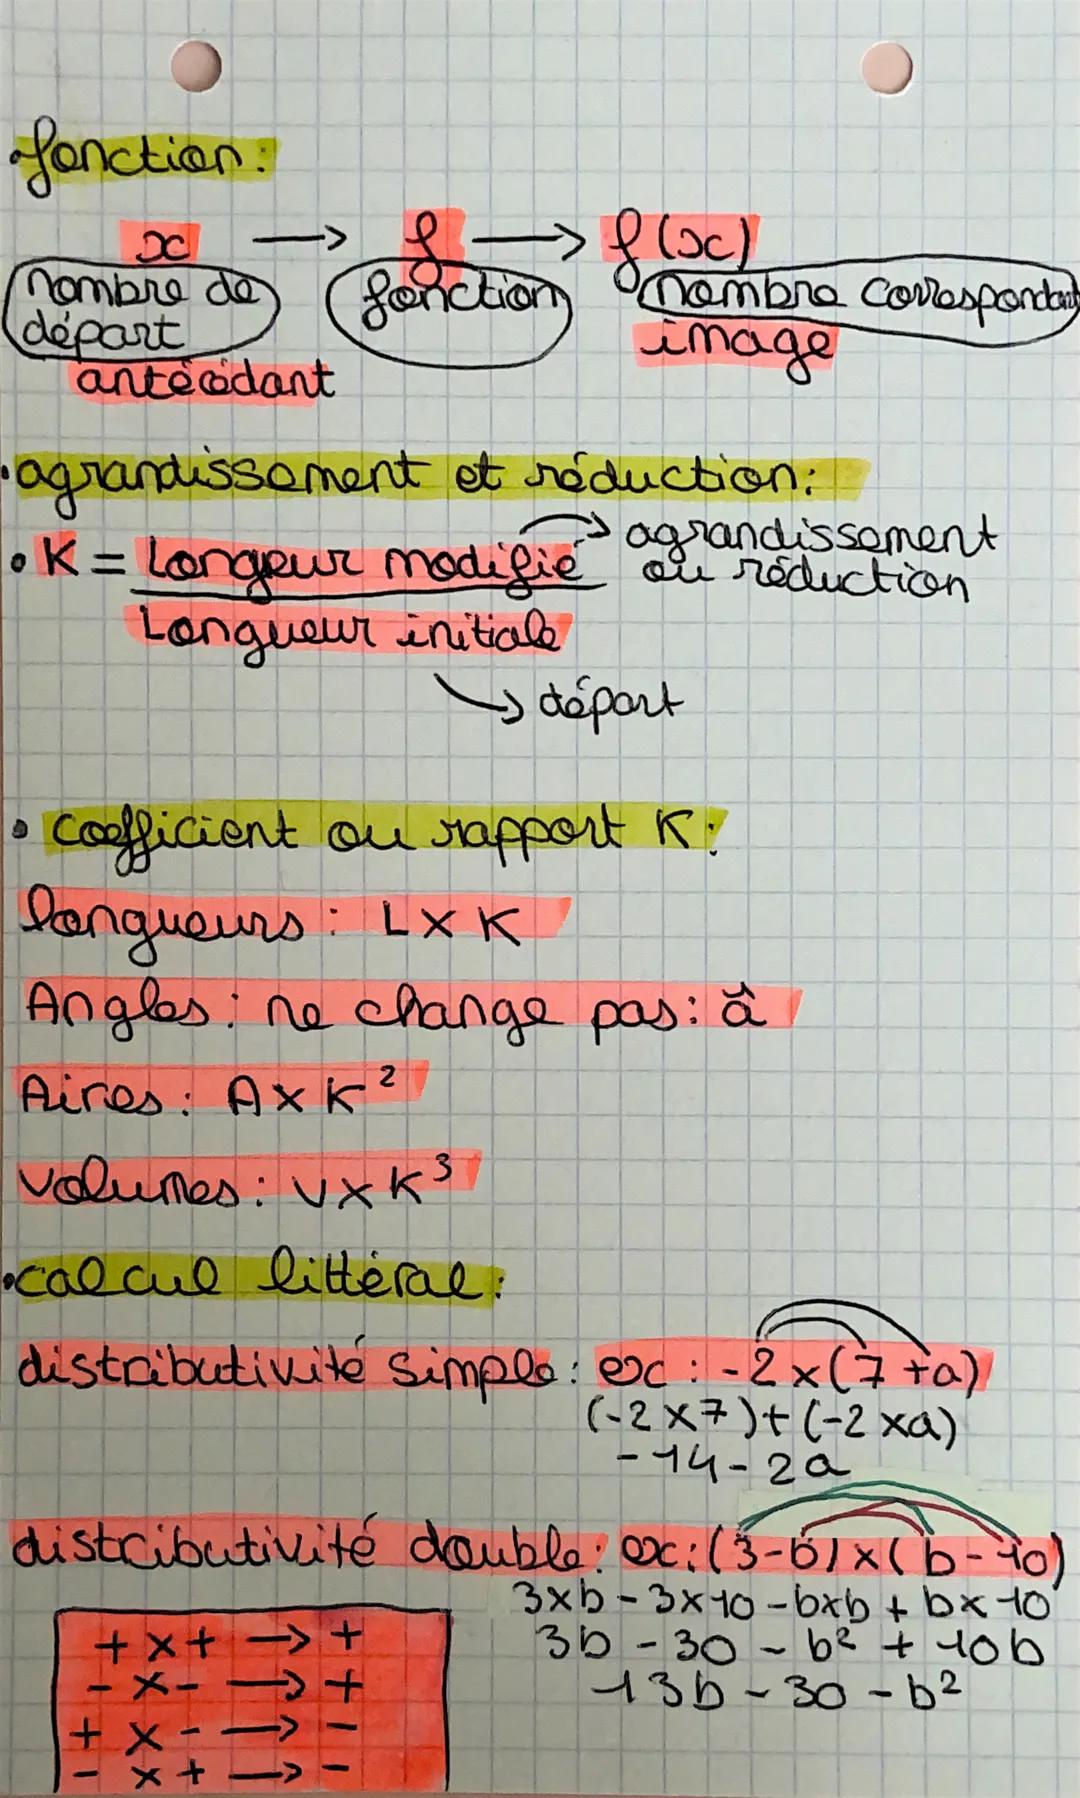 • fonction :
x → f → f(x)
nombre de départ fonction nombre correspondant
antécédant image
• agrandissement et réduction :
• K = Longeur modifié → agrandissement ou réduction
Longueur initiale
→ départ
• coefficient ou rapport K :
longueurs : L x K
Angles : ne change pas : â
Aires : A x K²
volumes : V x K³
• calcul littéral :
distributivité simple : ex : -2 x (7 + a)
(-2 x 7) + (-2 x a)
-14 - 2a
distributivité double : ex : (3 - b) x (b - 10)
3xb - 3x10 - bxb + bx10
3b - 30 - b² + 10b
13b - 30 - b²
+ x + → +
- x - → +
+ x - → -
- x + → -